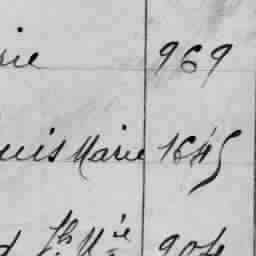 rie 969
ouis Marie 1645
d Jh Mie 904